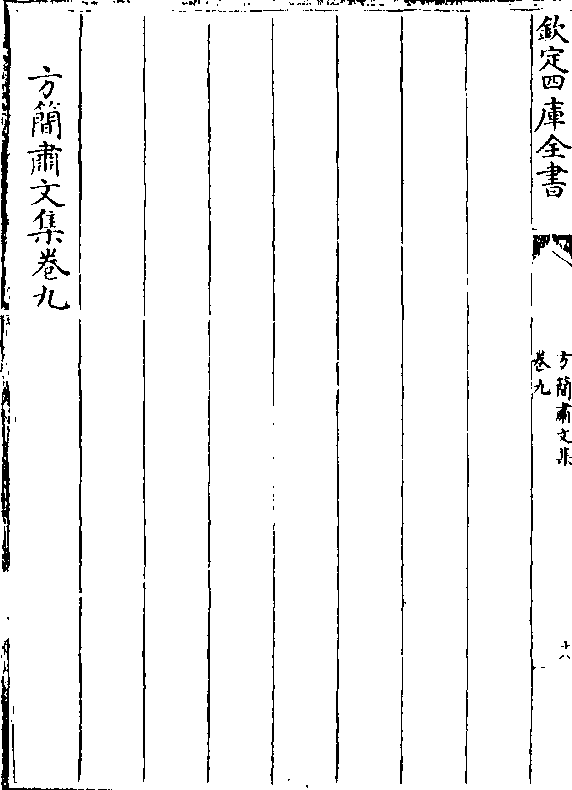 欽定四庫全書
方簡肅文集
卷九
十八
方簡肅文集卷九